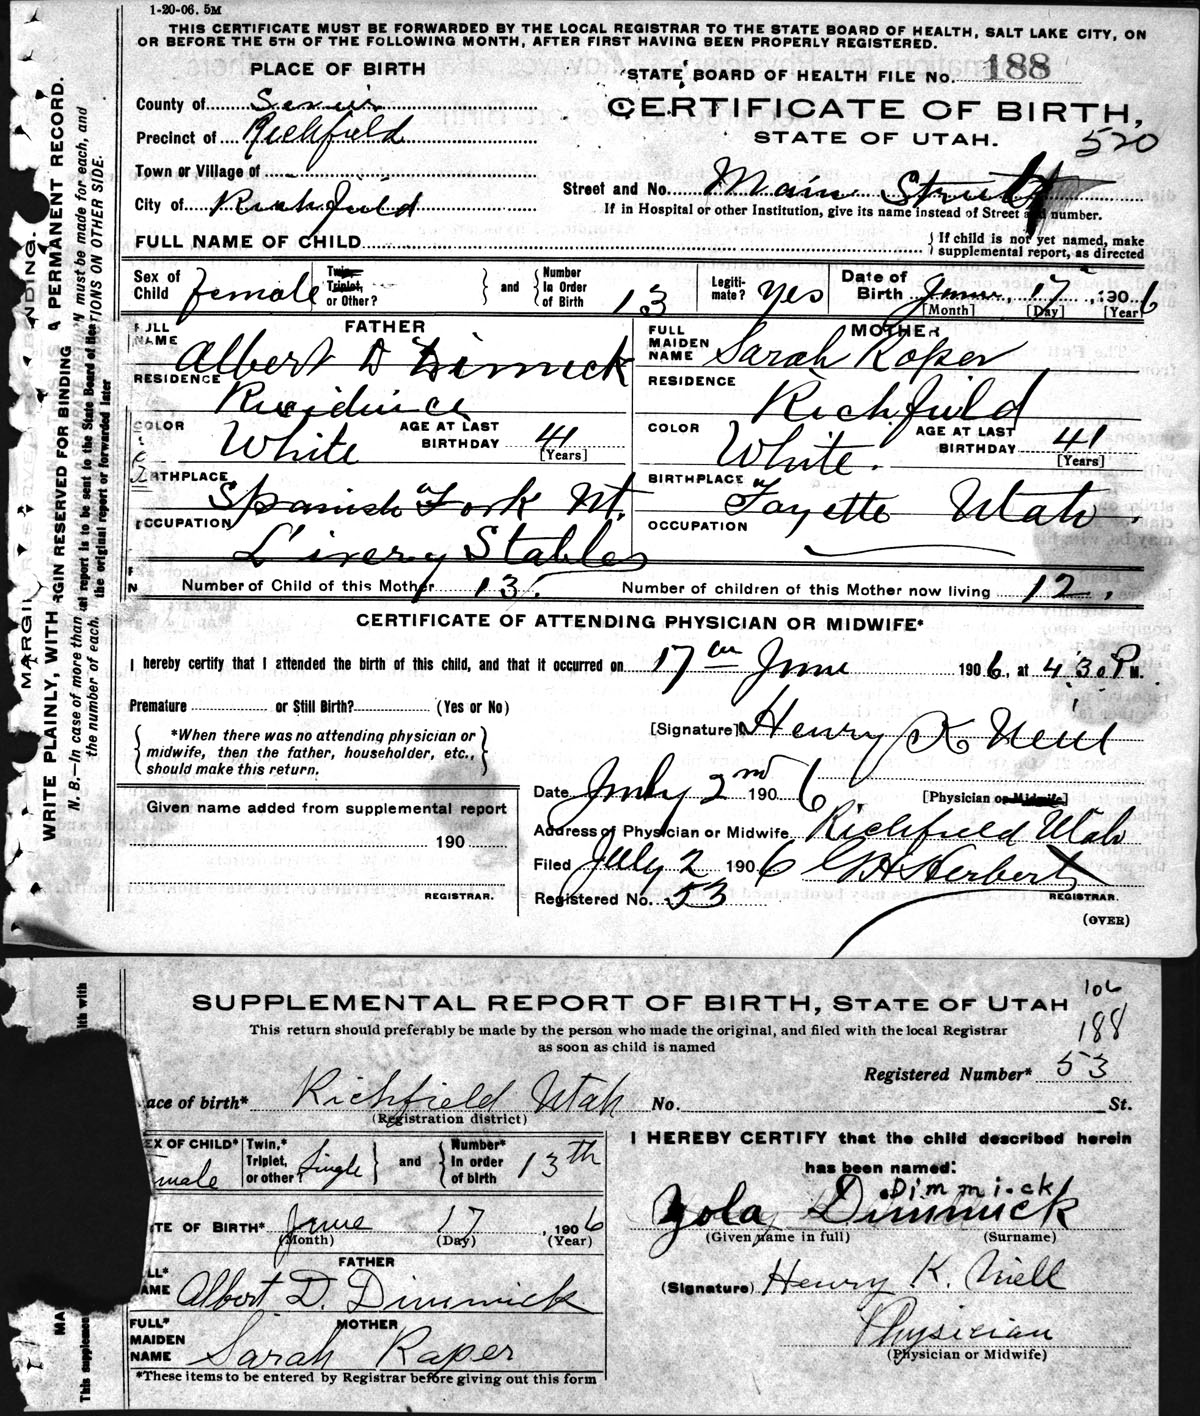 1-20-06. 5M
THIS CERTIFICATE MUST BE FORWARDED BY THE LOCAL REGISTRAR TO THE STATE BOARD OF HEALTH, SALT LAKE CITY, ON
OR BEFORE THE 5TH OF THE FOLLOWING MONTH, AFTER FIRST HAVING BEEN PROPERLY REGISTERED.
PLACE OF BIRTH
STATE BOARD OF HEALTH FILE No. 188
County of Sevier
CERTIFICATE OF BIRTH,
Precinct of Richfield
STATE OF UTAH.
520
Town or Village of
Street and No. Main Street
City of Richfield
If in Hospital or other Institution, give its name instead of Street and number.
FULL NAME OF CHILD
If child is not yet named, make
supplemental report, as directed
Sex of Child female
Twin, Triplet, or Other?
and
Number In Order of Birth 13
Legitimate? Yes
Date of Birth June, 17, 1906
[Month] [Day] [Year]
FATHER
FULL NAME Albert D Dimmick
MOTHER
FULL MAIDEN NAME Sarah Roper
RESIDENCE Residence
RESIDENCE Richfield
COLOR White
AGE AT LAST BIRTHDAY 41 [Years]
COLOR White.
AGE AT LAST BIRTHDAY 41 [Years]
BIRTHPLACE Spanish Fork Ut.
BIRTHPLACE Fayette Utah.
OCCUPATION Livery Stables
OCCUPATION
Number of Child of this Mother 13.
Number of children of this Mother now living 12.
CERTIFICATE OF ATTENDING PHYSICIAN OR MIDWIFE*
I hereby certify that I attended the birth of this child, and that it occurred on 17 June 1906, at 4:30 P M.
Premature or Still Birth? (Yes or No)
*When there was no attending physician or
midwife, then the father, householder, etc.,
should make this return.
[Signature] Henry K Neill
Date July 2nd 1906
[Physician or Midwife]
Given name added from supplemental report
190
Address of Physician or Midwife Richfield Utah
Filed July 2 1906 G H Herbert
REGISTRAR.
REGISTRAR.
Registered No. 53
(OVER)
WRITE PLAINLY, WITH
MARGIN RESERVED FOR BINDING
A PERMANENT RECORD.
N. B.—In case of more than
must be made for each, and
the number of each,
report is to be sent to the State Board of
the original report or forwarded later
ON OTHER SIDE.
SUPPLEMENTAL REPORT OF BIRTH, STATE OF UTAH
106
188
This return should preferably be made by the person who made the original, and filed with the local Registrar
as soon as child is named
Registered Number* 53
ace of birth* Richfield Utah No. St.
(Registration district)
EX OF CHILD* male
Twin,* Triplet, or other? Single
and
Number* In order of birth 13th
I HEREBY CERTIFY that the child described herein
has been named:
Dimmick
Yola Dimmick
(Given name in full) (Surname)
TE OF BIRTH* June 17, 1906
(Month) (Day) (Year)
FATHER
LL* AME Albert D. Dimmick
(Signature) Henry K. Niell
Physician
(Physician or Midwife)
MOTHER
FULL* MAIDEN NAME Sarah Raper
*These items to be entered by Registrar before giving out this form
This supplemen
lth with
MA